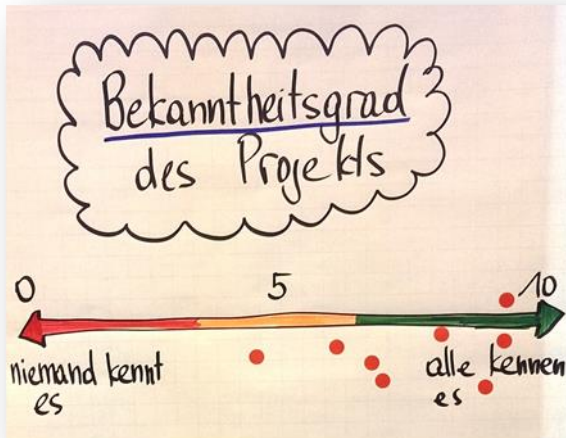 Bekanntheitsgrad
des Projekts
0 5 10
niemand kennt
es
alle kennen
es